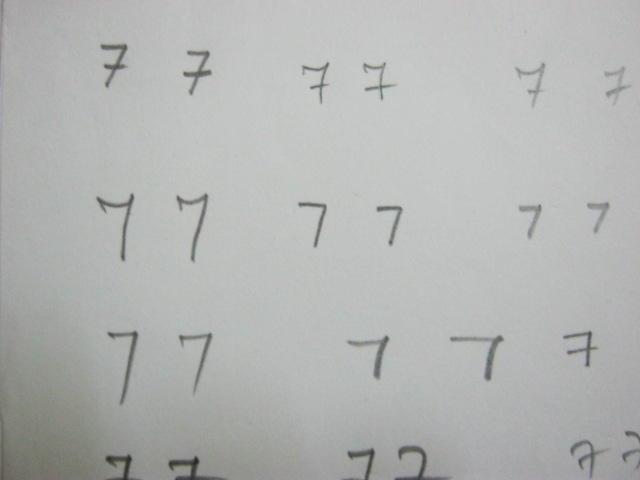 7 7 7 7 7 7
7 7 7 7 7 7
7 7 7 7 7
7 7 7 7 7 7